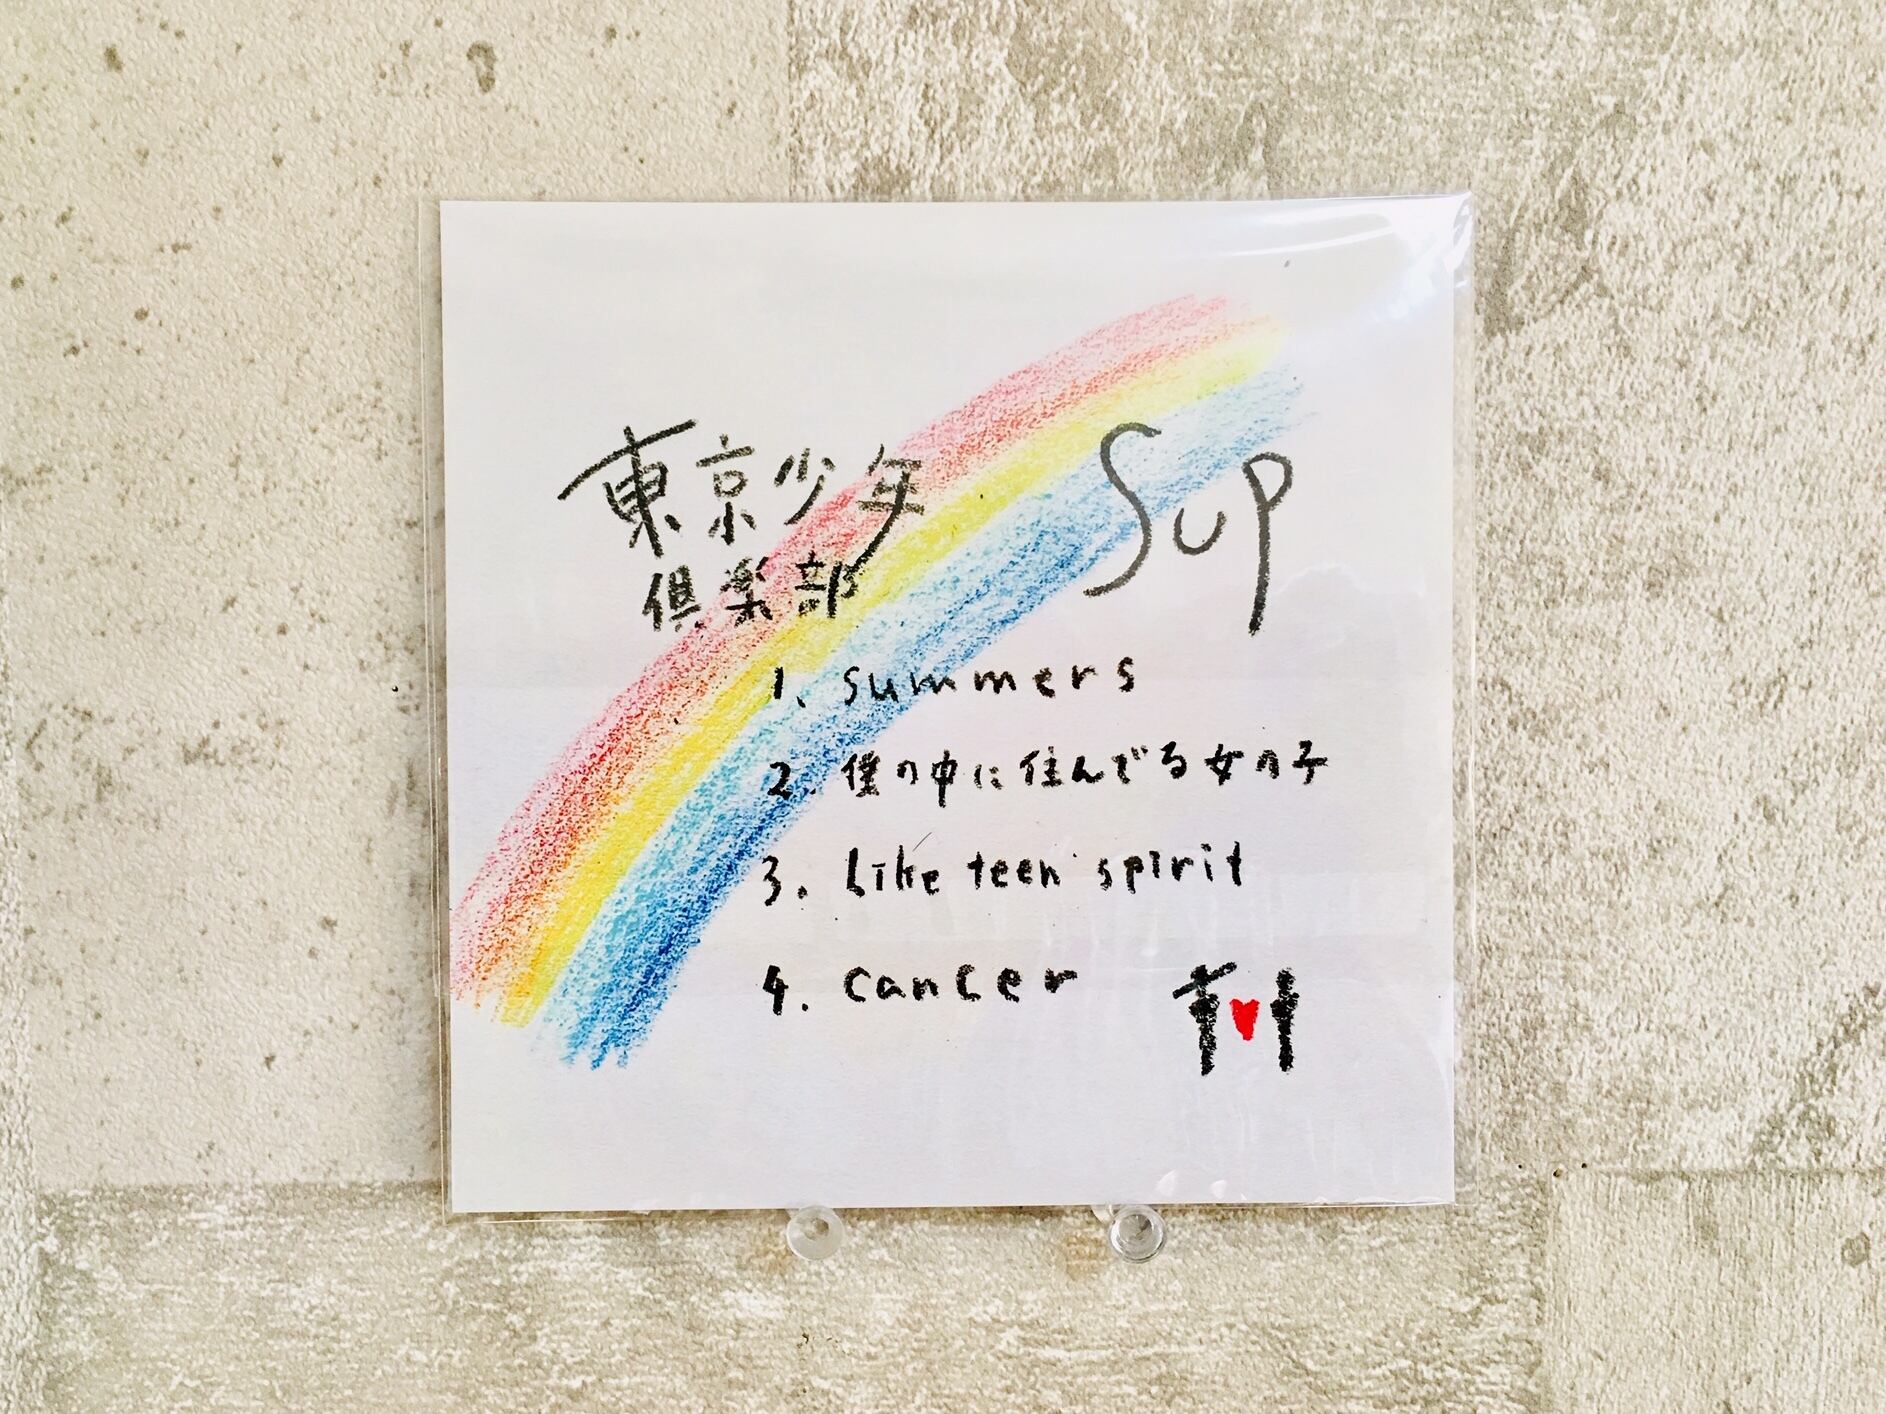 東京少年 Sup
倶楽部
1. summers
2. 僕の中に住んでる女の子
3. Like teen spirit
4. cancer